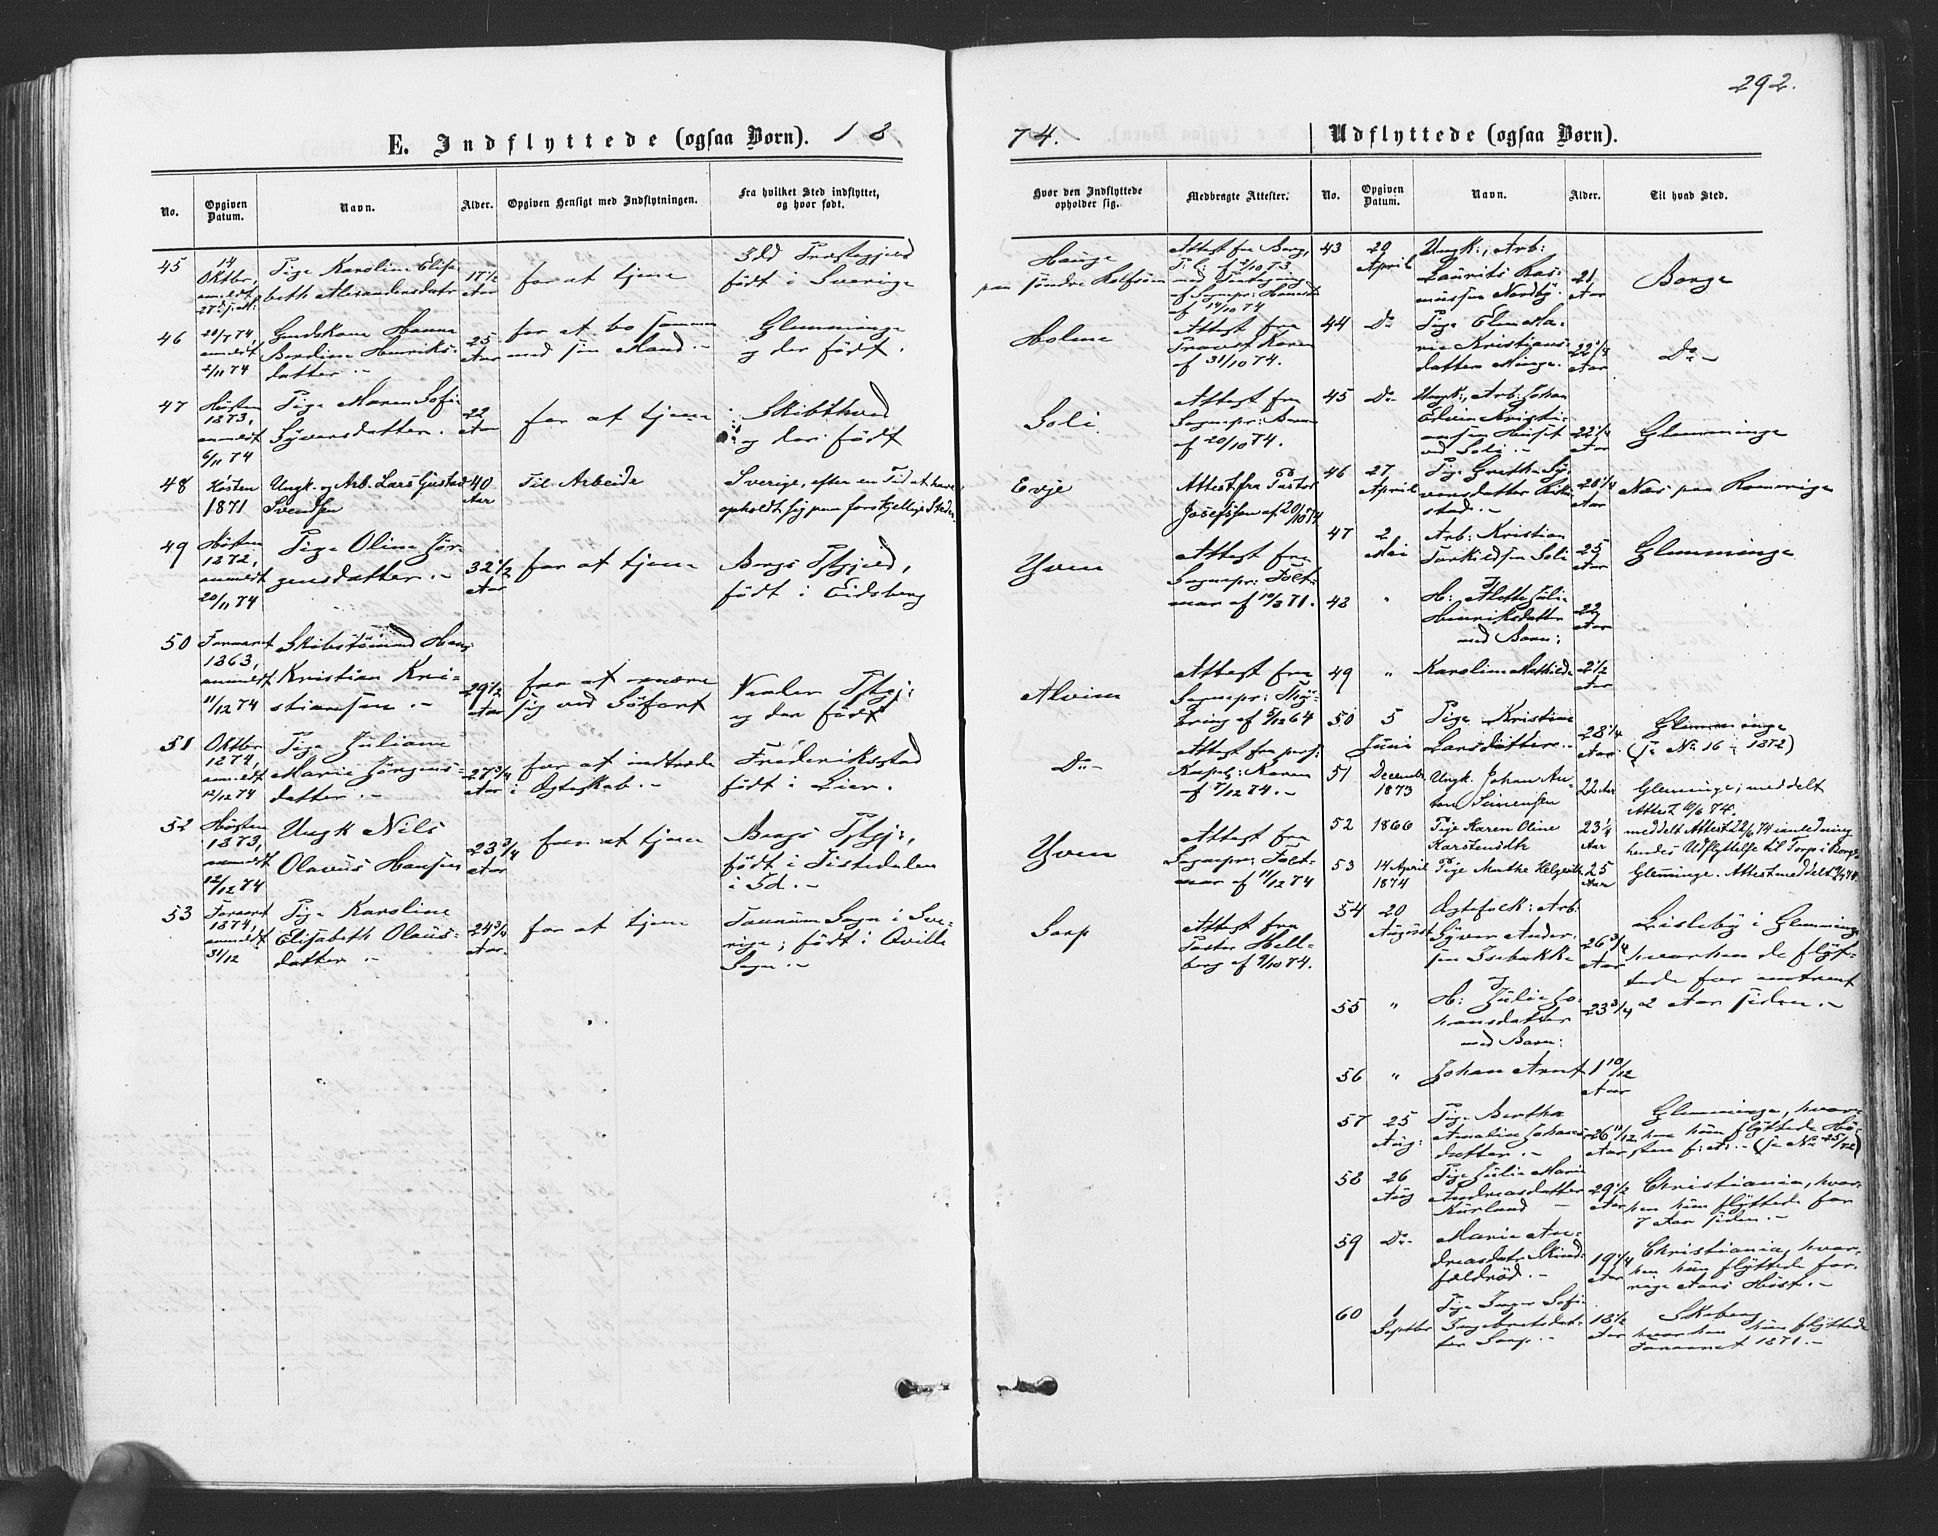 292.
E. Indflyttede (ogsaa Børn). 18
74.
Udflyttede (ogsaa Børn).
No.
Opgiven Datum.
Navn.
Alder.
Opgiven Hensigt med Indflytningen.
Fra hvilket Sted indflyttet, og hvor født.
Hvor den Indflyttede opholder sig.
Medbragte Attester.
No.
Opgiven Datum.
Navn.
Alder.
Til hvad Sted.
45
14
Oktbr,
anmeldt
Pige Karoline Elisa-
beth Alexandersdatr
17 1/2
Aar
for at tjene
Idd Præstegjeld
født i Sverige
Hauge
paa søndre
Attest fra Borg,
af 14/10 74
46
20/7 74,
anmeldt
2/11 74
Hanna
Henriks-
datter. -
25
Aar
for at bo sammen
med sin Mand. -
Glemminge
og der født.
Holme
Attest fra
af 31/10 74.
47
Høsten
1873,
anmeldt
6/11 74
Pige Maren Sofie
Syversdatter. -
22
Aar
for at tjene
Skibthvet
og der født
Soli.
Attest fra
Sognepr:
af 20/10 74.
48
Høsten
1871
Ungk. og Arb. Lars Gustav
Svendsen
40
Aar
Til Arbeide
Sverige, efter en Tid at have
opholdt sig paa forskjellige Steder.
Evje
Attest fra Pastor
Josefsson af 20/10 74
49
Høsten
1872,
anmeldt
20/11 74
Pige Oline Jør-
gensdatter. -
32 1/2
Aar
for at tjene
Borgs Pstgjeld,
født i Eidsberg
Yven
Attest fra
Sognepr:
af 10/3 71.
50
Foraaret
1863,
anmeldt
11/12 74
Skibstømmd Hans
Kristian Kri-
stiansen. -
29 1/2
Aar
for at nære
sig ved Søfart
Vanler Pstgj:
og der født
Alvim
Attest fra
Sognepr:
af 5/12 64
51
Oktbr
1874,
anmeldt
12/12 74
Pige Juliane
Marie Jørgens-
datter. -
27 3/4
Aar
for at indtræde
i Ægteskab. -
Frederiksstad
født i Lier.
Do -
Attest fra pers:
Kapel:
af 7/12 74. -
52
Høsten
1873,
anmeldt
12/12 74
Ungk Nils
Olavus Hansen
23 3/4
Aar
for at tjene
Borgs Pstgj:,
født i Tistedalen
i Id. -
Yven
Attest fra
Sognepr:
af 11/12 74
53
Foraaret
1874,
anmeldt
31/12
Pige Karoline
Elisabeth Olaus-
datter. -
24 3/4
Aar.
for at tjene
Tanum Sogn i Sve-
rige; født i Qville
Sogn. -
Sarp
Attest fra
Pastor Hell-
berg af 9/10 74.
43
29
April
Ungk:, Arb:
Laurits Ras-
mussen Nordby.
21
Aar
Borge
44
Do
Pige Elen Ma-
rie Kristians-
datter Minge.
22 1/4
Aar
Do -
45
Do
Ungk:, Arb: Johan
Edvin Kristi-
ansen Huset
ved Soli. -
22 1/4
Aar
Glemminge
46
27
April
Pige Grethe Sy-
versdatter
28 1/4
Aar
Næs paa Romerige
47
2
Mai
Arb: Kristian
Torkildsen Soli
25
Aar
Glemminge
48
"
H: Alette Juli-
Henriksdatter
med Barn:
22
Aar
49
"
Karoline Mathilde
2 1/2
Aar
50
5
Juni
Pige Kristine
Larsdatter. -
28 1/4
Aar.
Glemminge
(se No 16 i 1872)
51
Decembr
1873
Ungk. Johan An-
ton Simensen
22 Aar
Glemminge; meddelt
Attest 10/6 74.
52
1866
Pige Karen Oline
Karstensdtr
23 1/4
Aar
meddelt Attest 22/6 74 i anledning
hendes Udflyttelse til Torp i Borge
53
14 April
1874
Pige Marthe Helgesdtr
25
Aar
Glemminge. Attest meddelt
54
20
August
Ægtefolk: Arb:
Syver Ander-
sen Isebakke
26 3/4
Aar
Lisleby i Glemminge
hvorhen de flyt-
tede for omtrent
2 Aar siden. -
55
"
H: Julie Jo-
hansdatter
med Barn:
23 3/4
56
"
Johan Arnt
1 10/12
Aar
57
25
Aug:
Pige Berthe
Amalie Johans-
datter. -
26 11/12
Aar
Glemminge, hvor-
hen hun flyttede Hø-
sten f: A: - (se No 25/72)
58
26
Aug
Pige Julie Marie
Andreasdatter
Kurland -
29 1/2
Aar
Christiania, hvor-
hen hun flyttede for
7 Aar siden. -
59
Do -
Marie An-
dreasdatr Skind-
fældrød. -
19 1/4
Aar
Christiania, hvor-
hen hun flyttede for-
rige Aars Høst. -
60
1
Septbr
Pige Inger Sofie
Ingebretsdat-
ter Sarp. -
18 1/2
Aar
Skeberg
hvorhen hun flyttede
Foraaret 1871. -